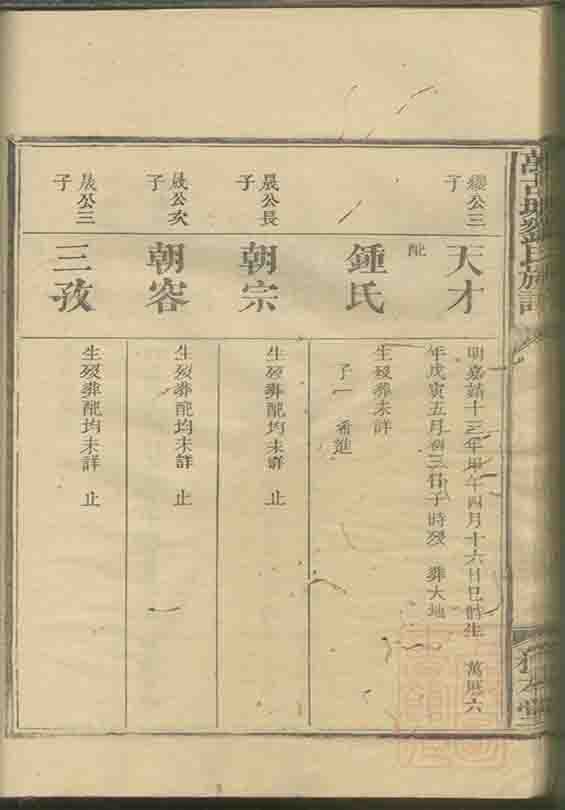 纓公三
子
天才
明嘉靖十三年甲午四月十六日巳時生 萬厯六
年戊寅五月初三日子時殁 葬大地
配
鍾氏
生殁葬未詳
子一 希進
晟公長
子
朝宗
生殁葬配均未詳 止
晟公次
子
朝容
生殁葬配均未詳 止
晟公三
子
三孜
生殁葬配均未詳 止